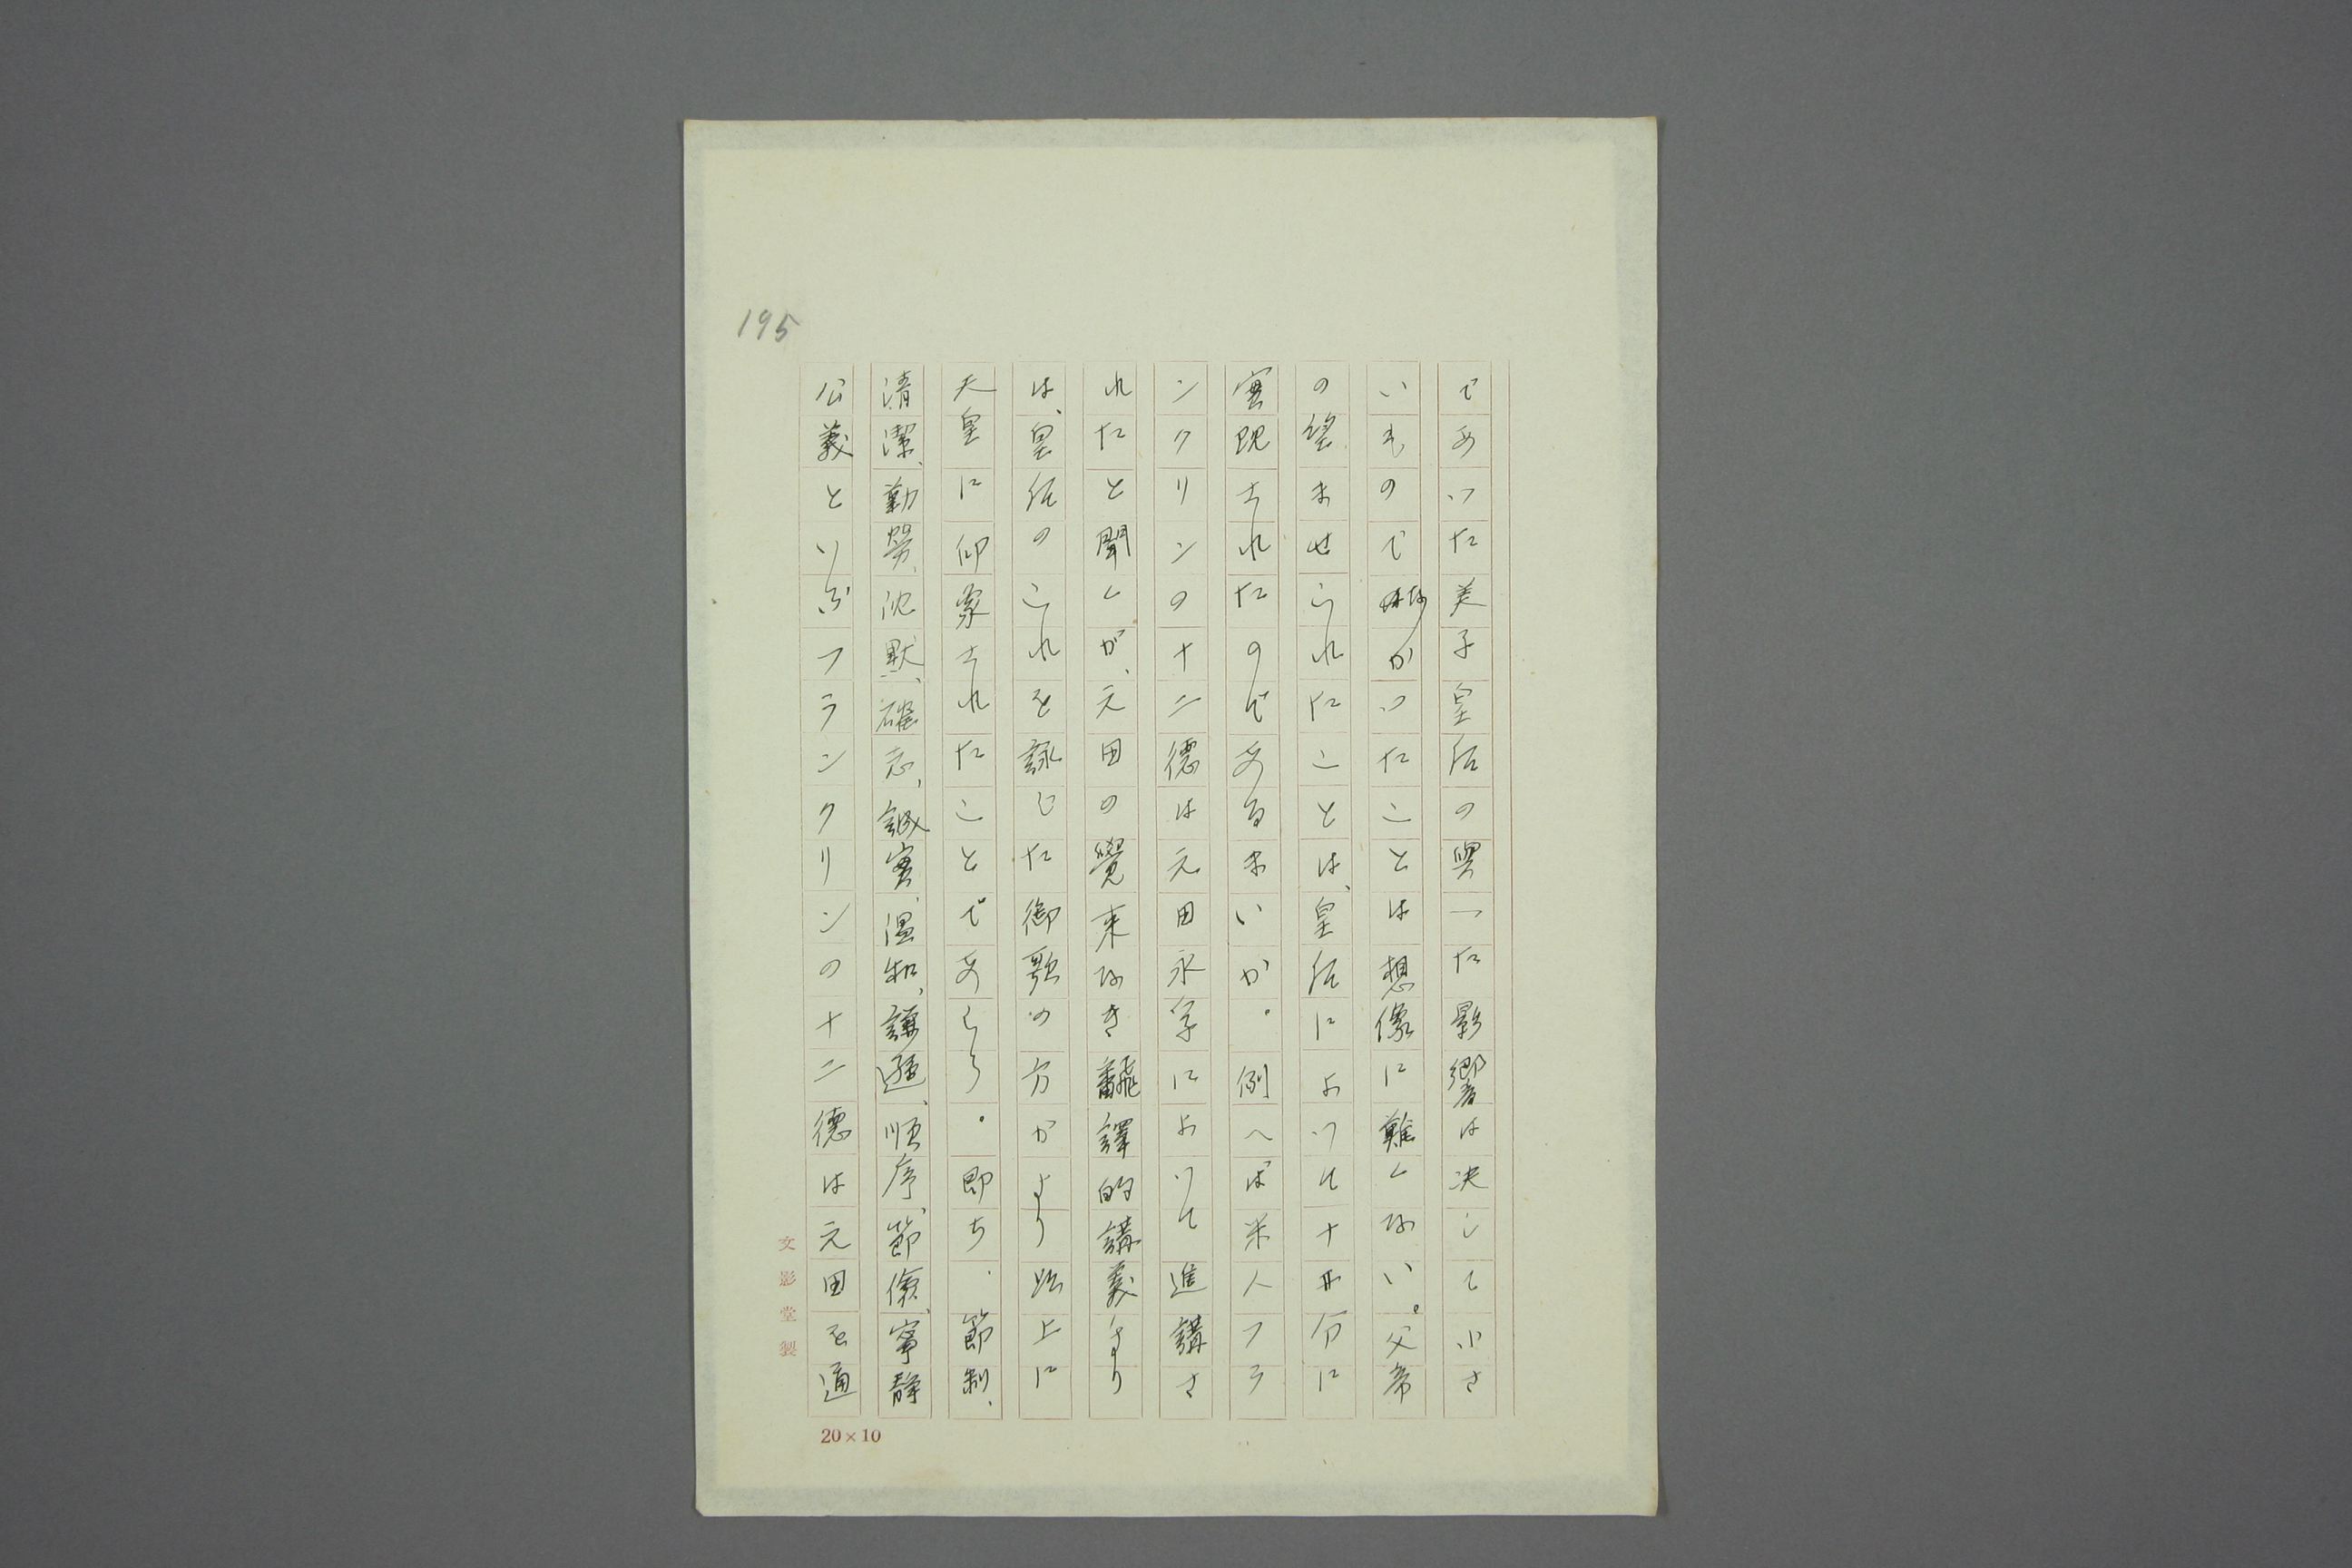 195
であつた美子皇后の與へた影響は決して小さ
いものでなかつたことは想像に難くない。父帝
の望ませられたことは、皇后によつて十廿分に
實現されたのであるまいか。例へば米人フラ
ンクリンの十二德は元田永孚によつて進講さ
れたと聞くが、元田の覺束なき飜譯的講義より
は、皇后のこれを詠じた御歌の方がより以上に
天皇に印象されたことであらう。即ち、節制、
清潔、勤勞、沈默、確志、誠實、温和、謙遜、順序、節儉、寧靜
公義といふフランクリンの十二德は元田を通
文影堂製
20×10